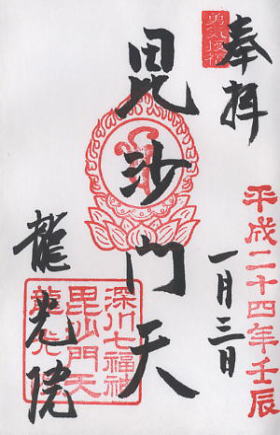 奉拝
勇気授福
平成二十四年壬辰
一月三日
毘沙門天
深川七福神
毘沙門天
龍光院
龍光院